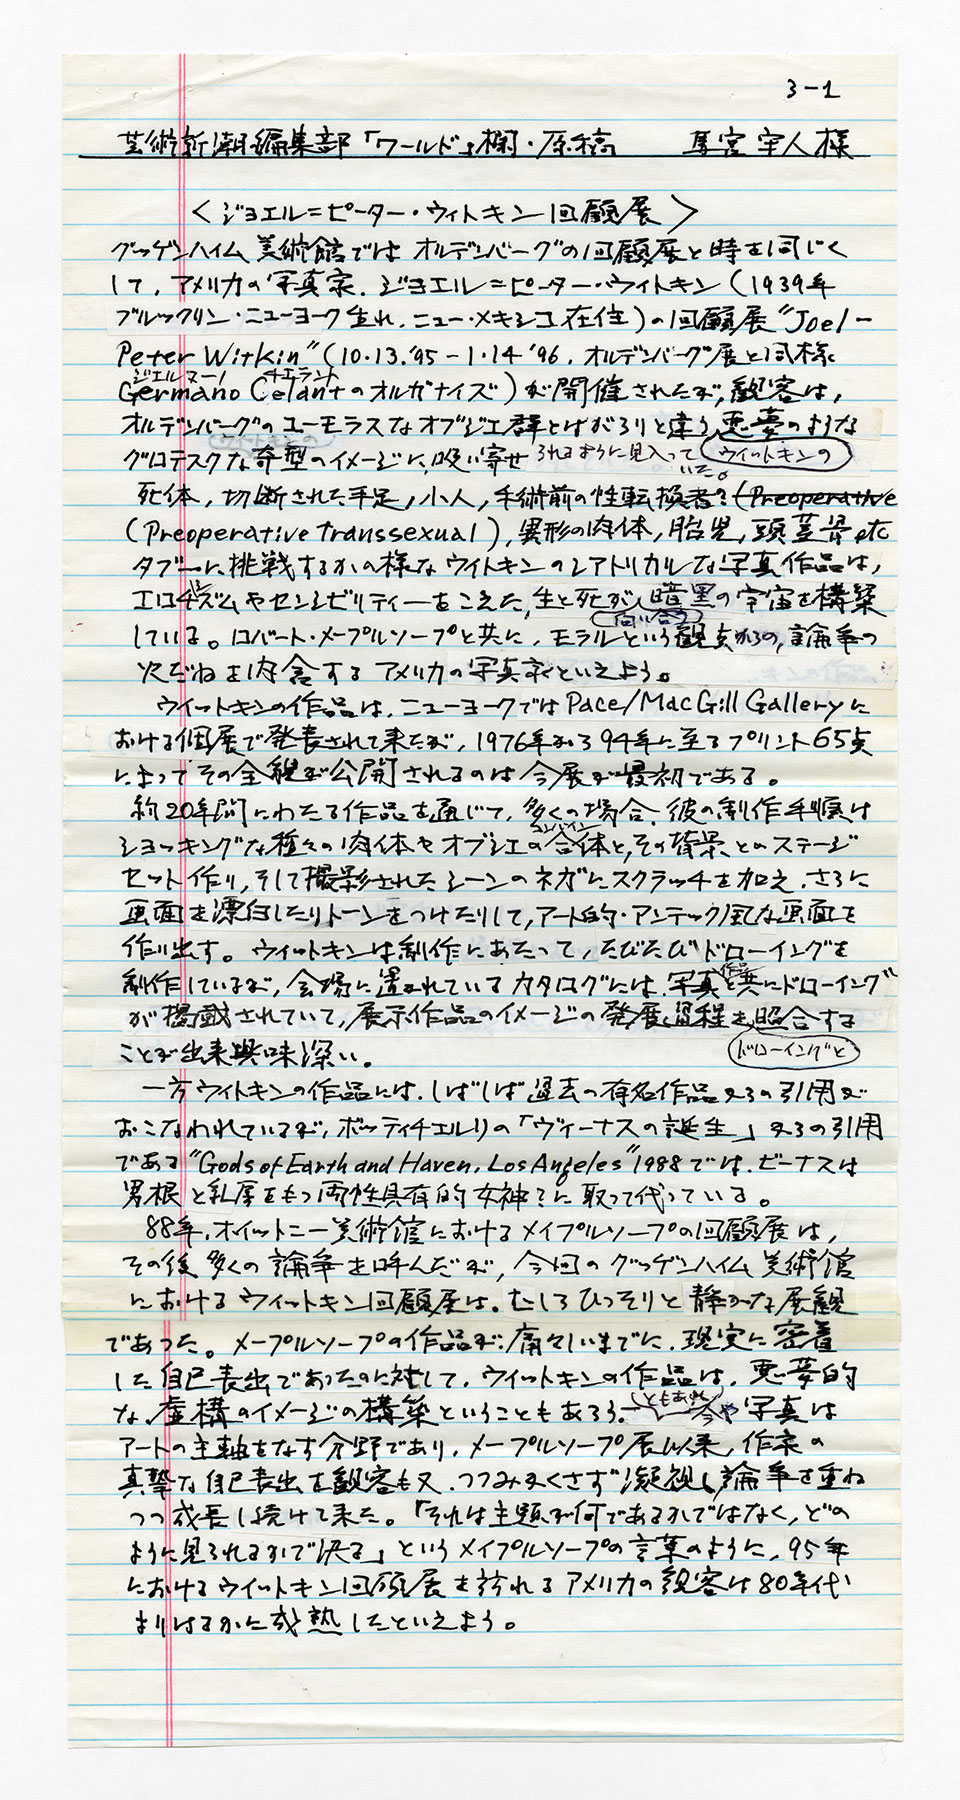 3-1
芸術新潮編集部「ワールド」欄・原稿 馬宮守人様
〈ジョエル=ピーター・ウィトキン回顧展〉
グッゲンハイム美術館ではオルデンバーグの回顧展と時を同じく
して、アメリカの写真家、ジョエル=ピーター・ウィトキン(1939年
ブルックリン・ニューヨーク生れ、ニュー・メキシコ在住)の回顧展"Joel-
Peter Witkin"(10・13.'95-1・14'96、オルデンバーグ展と同様に
ジェルマーノ チェラント
Germano Celantのオルガナイズ)が開催されたが、観客は、
オルデンバーグのユーモラスなオブジェ群とはがらりと違う、悪夢のような
グロテスクな奇型のイメージに、吸い寄せられるように見入っていた。ウィットキンの
死体、切断された手足、小人、手術前の性転換者?(Preoperative
(Preoperative transsexual)、異形の肉体、胎児、頭蓋骨etc
タブーに挑戦するかの様なウィトキンのシアトリカルな写真作品は、
エロチシズムやセンシビリティーをこえた、生と死が向い合う暗黒の宇宙を構築
している。ロバート・メープルソープと共に、モラルという観点からの、論争の
火だねを内含するアメリカの写真家といえよう。
ウィットキンの作品は、ニューヨークではPace/MacGill Galleryに
おける個展で発表されて来たが、1976年から94年に至るプリント65点
によってその全貌が公開されるのは今展が最初である。
約20年間にわたる作品を通じて、多くの場合、彼の制作手順は
コンバイン
ショッキングな種々の肉体やオブジェの合体と、その背景とのステージ
セット作り、そして撮影されたシーンのネガにスクラッチを加え、さらに
画面を漂白したりトーンをつけたりして、アート的・アンテック風な画面を
作り出す。ウィットキンは制作にあたって、たびたびドローイングを
制作しているが、会場に置かれているカタログには、写真作品と共にドローイング
が掲載されていて、展示作品のイメージの発展過程をドローイングと照合する
ことが出来興味深い。
一方ウィトキンの作品には、しばしば過去の有名作品からの引用が
おこなわれているが、ボッティチェルリの「ヴィーナスの誕生」からの引用
である"Gods of Earth and Haven, Los Angeles"1988では、ビーナスは
男根と乳房をもつ両性具有的女神?に取って代っている。
88年、ホイットニー美術館におけるメイプルソープの回顧展は、
その後多くの論争を呼んだが、今回のグッゲンハイム美術館
におけるウィットキン回顧展は、むしろひっそりと静かな展観
であった。メープルソープの作品が、痛々しいまでに、現実に密着
した自己表出であったのに対して、ウィットキンの作品は、悪夢的
な、虚構のイメージの構築ということもあろう。ともあれ今や写真は
アートの主軸をなす分野であり、メープルソープ展以来、作家の
真摯な自己表出を観客も又、つつみかくさず凝視し、論争を重ね
つつ成長し続けて来た。「それは主題が何であるかではなく、どの
ように見られるかで決る」というメイプルソープの言葉のように、95年
におけるウィットキン回顧展を訪れるアメリカの観客は80年代
よりはるかに成熟したといえよう。